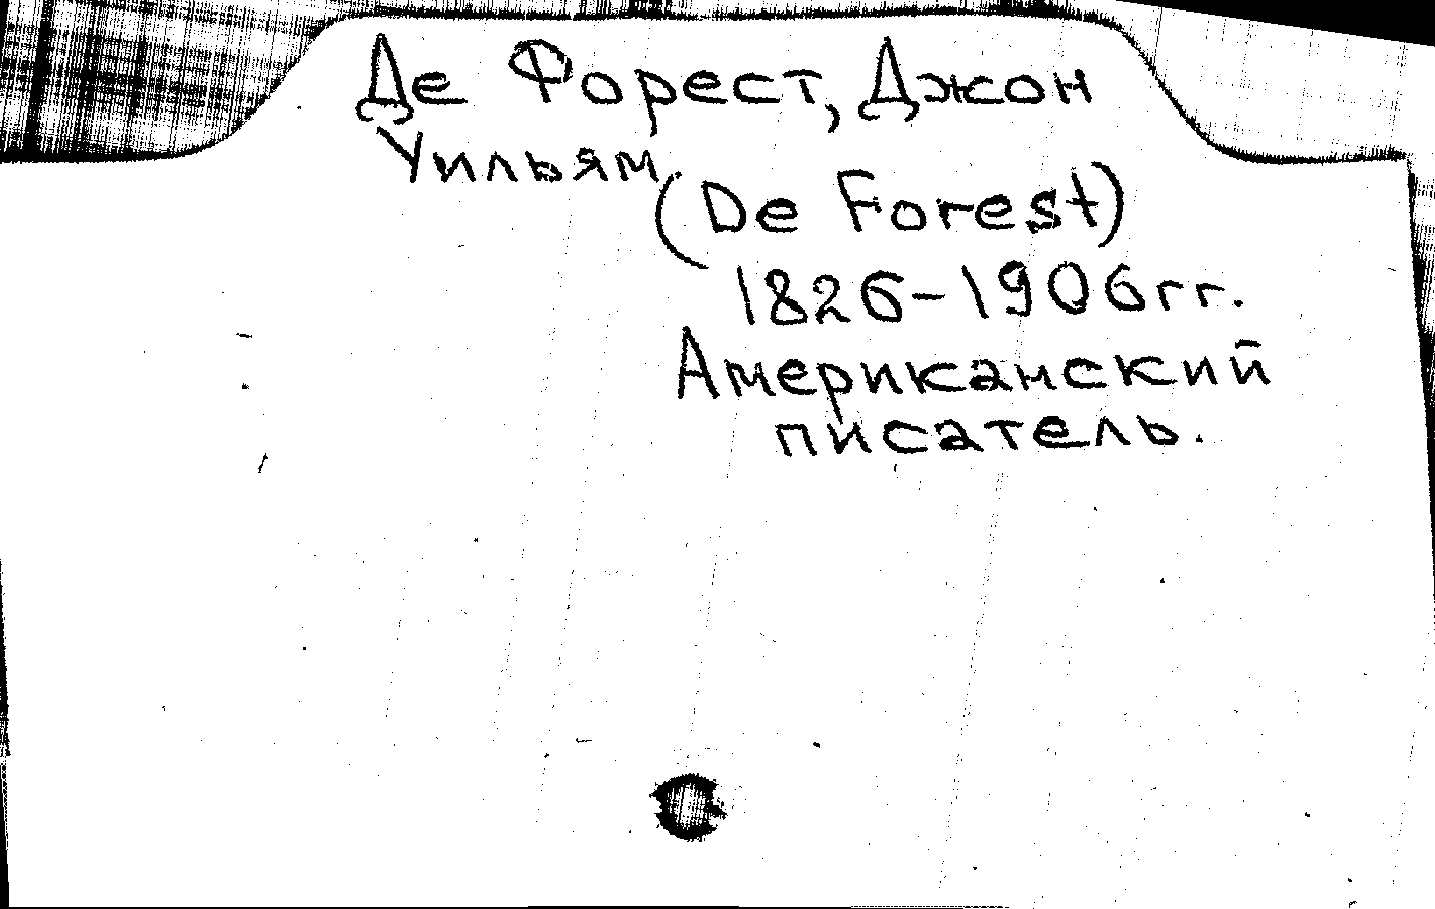 Де Форест, Джон
Уильям
(De Forest)
1826-1906гг.
Американский
писатель.